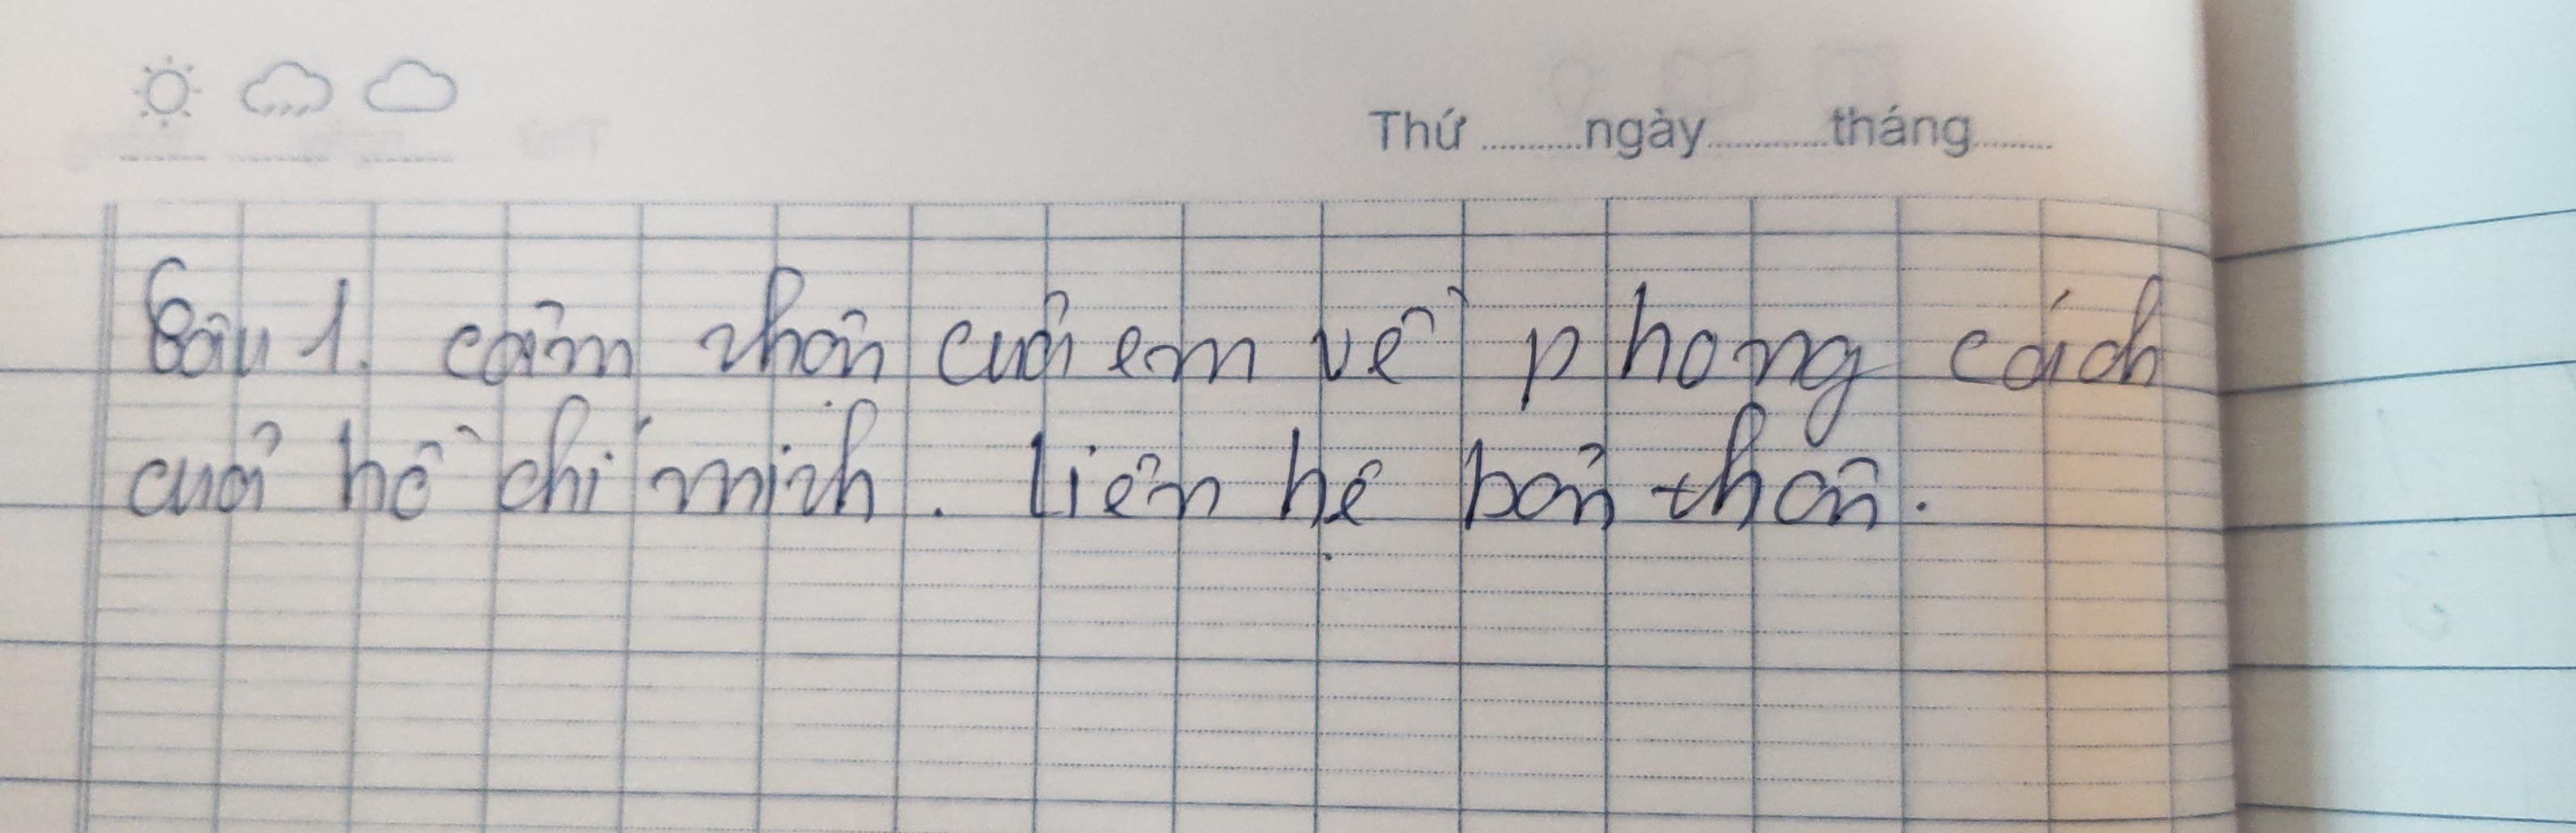 Thứ ..........ngày............tháng........
Câu 1. cảm nhận của em về phong cách
của hồ chí minh. liên hệ bản thân.